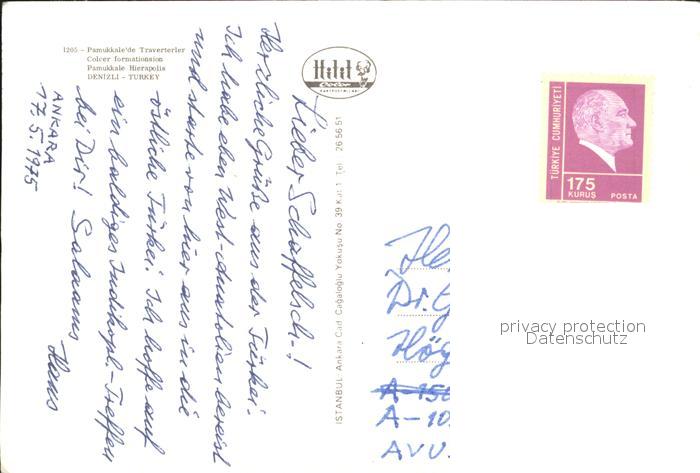 1205 – Pamukkale'de Traverterler
Colcer formationsion
Pamukkale Hierapolis
DENİZLİ – TURKEY
ANKARA
17.5.1975
Hitit
Color
Lieber Schoffelsch.-!
Herzliche Grüße aus der Türkei.
Ich habe eben West-Anatolien bereist
und starte von hier aus in die
östliche Türkei. Ich hoffe auf
ein baldiges Treffen
bei Dir! Salaams
Hans
İSTANBUL: Ankara Cad. Cağaloğlu Yokuşu No. 39 Kat: 1 Tel: 26 56 51
TÜRKİYE CUMHURİYETİ
175
KURUŞ
POSTA
He
Dr. G
Hög
A-150
A-10
AVU.
privacy protection
Datenschutz